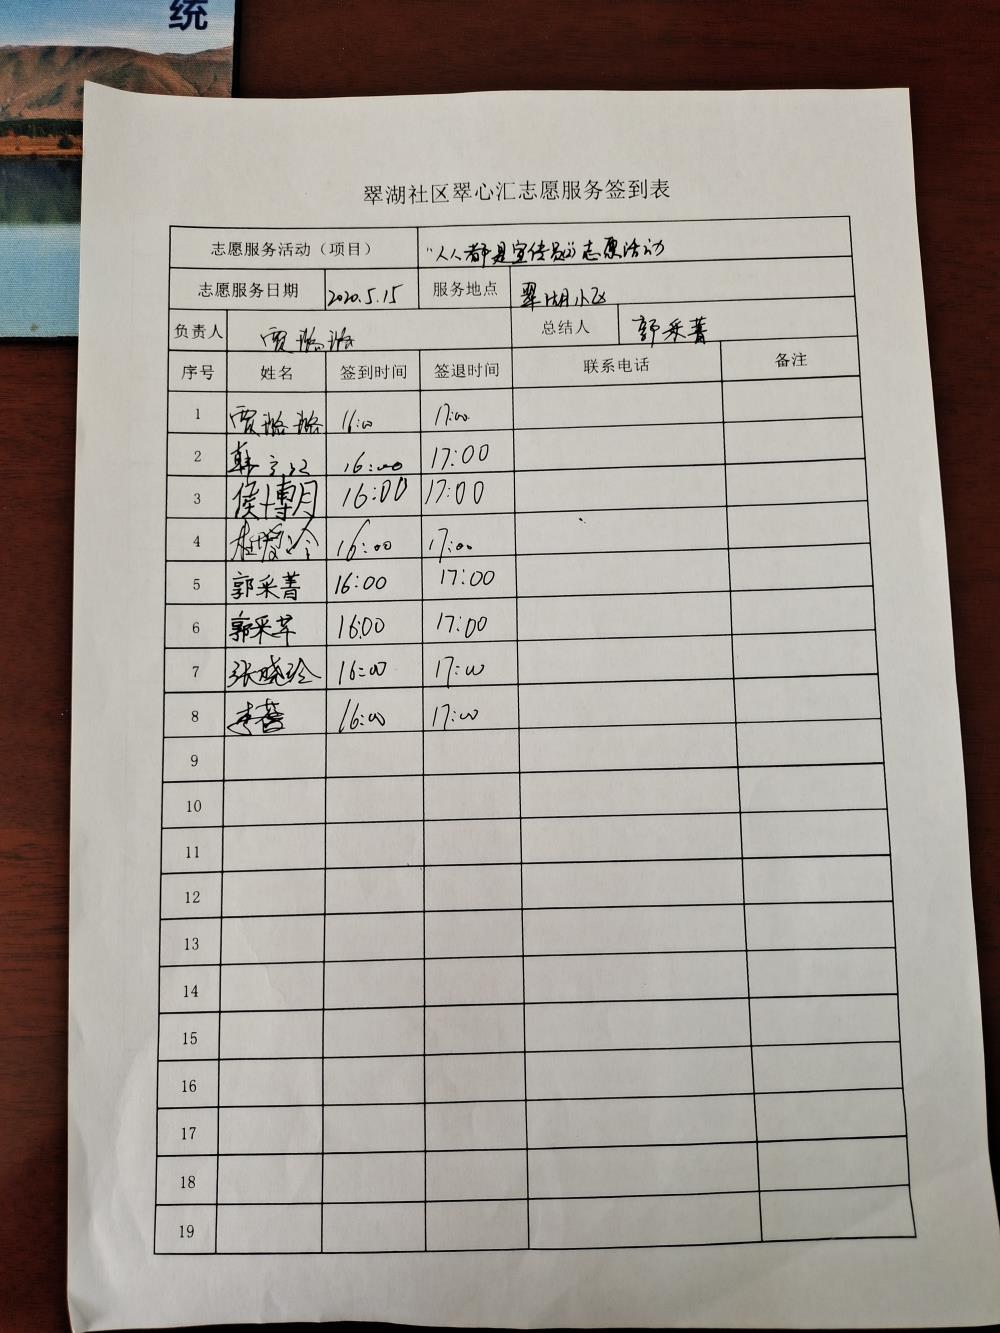 统
翠湖社区翠心汇志愿服务签到表
志愿服务活动（项目） “人人都是宣传员”志愿活动
志愿服务日期 2020.5.15 服务地点 翠湖小区
负责人 贾璐璐 总结人 郭采菁
序号 姓名 签到时间 签退时间 联系电话 备注
1 贾璐璐 16:00 17:00
2 韩 16:00 17:00
3 侯博月 16:00 17:00
4 杜爱玲 16:00 17:00
5 郭采菁 16:00 17:00
6 郭采苹 16:00 17:00
7 张晓玲 16:00 17:00
8 李蕾 16:00 17:00
9
10
11
12
13
14
15
16
17
18
19